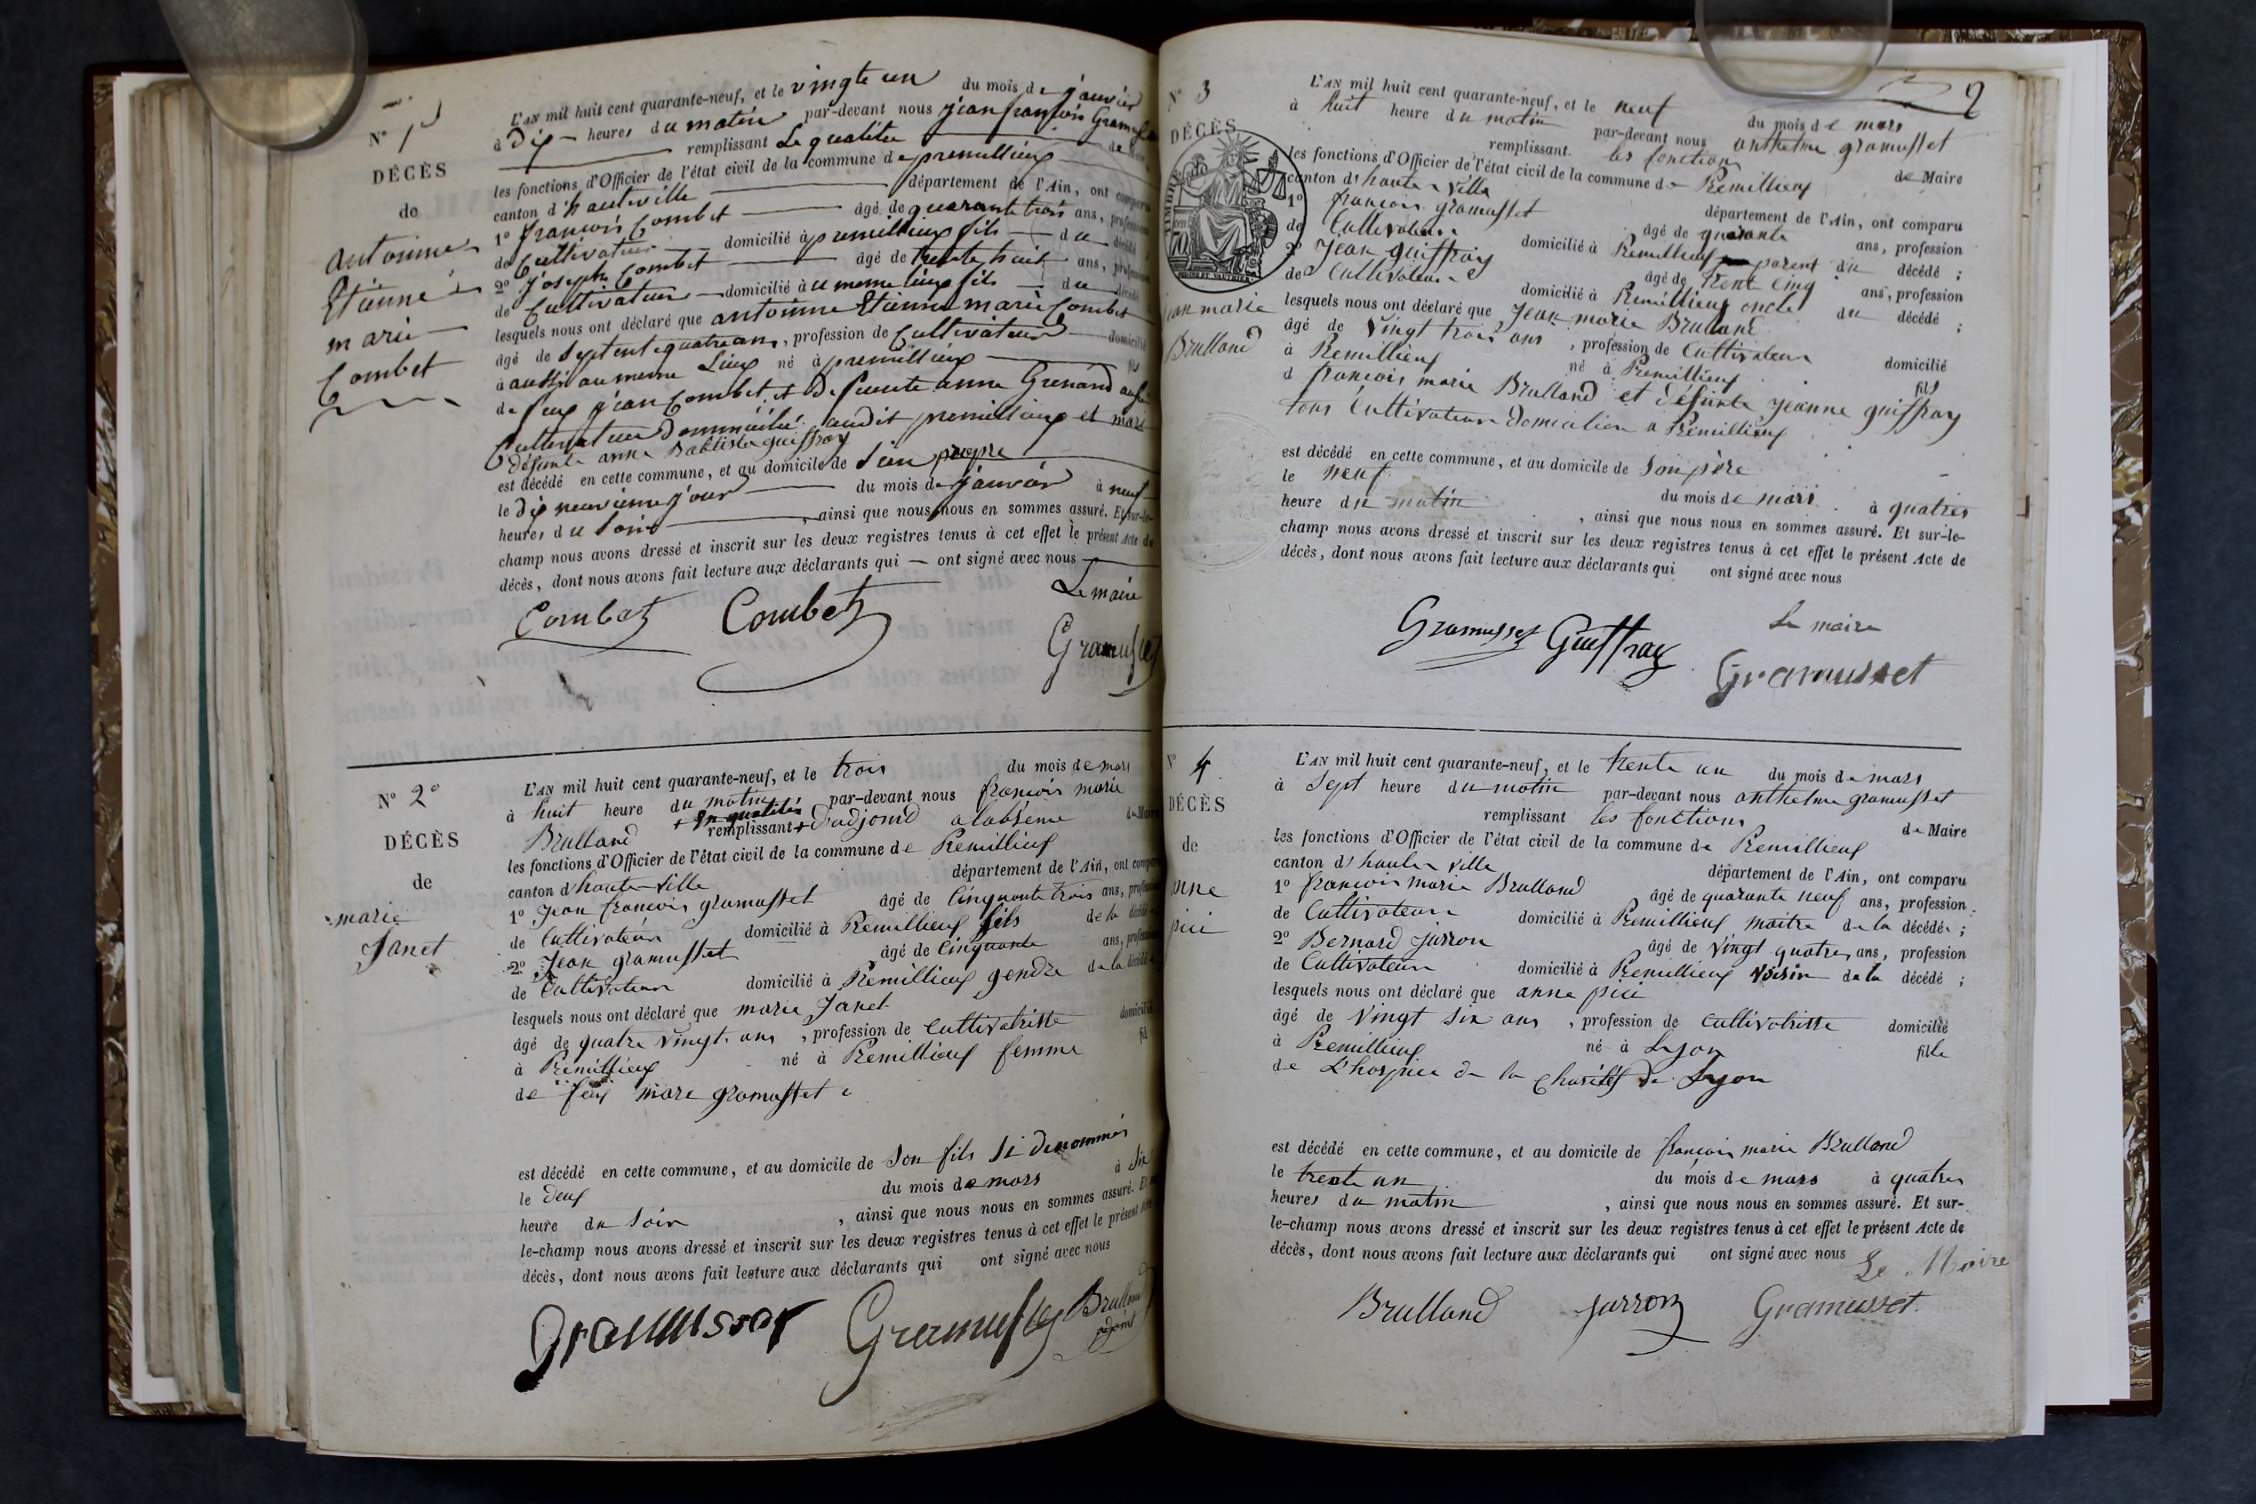 N° 1er
DÉCÈS
de
antoinne
Etienne
marie
Combet
L'AN mil huit cent quarante-neuf, et le vingte un du mois de janvier
à dix heures du matin par-devant nous jean françois
remplissant Le qualité
les fonctions d'Officier de l'état civil de la commune de premillieux
canton d'hauteville département de l'Ain, ont
1° françois Combet âgé de quarante trois ans,
de Cultivateur domicilié à premillieux fils du
2° Joseph Combet âgé de trente huit ans,
de Cultivateur domicilié à u meme lieux fils du
lesquels nous ont déclaré que antoinne Etienne marie Combet
âgé de septente quatre ans, profession de Cultivateur
à aussi au meme Lieux né à premillieux
de feux jean Combet et defuente anne Grenand
Cultivateur domicilié audit premillieux et mari
défunte anne Babtiste guiffray
est décédé en cette commune, et au domicile de sien propre
le dix neuvieme jour du mois de janvier à neuf
heures du soir, ainsi que nous nous en sommes assuré. Et sur-le-
champ nous avons dressé et inscrit sur les deux registres tenus à cet effet le présent Acte de
décès, dont nous avons fait lecture aux déclarants qui ont signé avec nous
Le maire
Combet Combet
N° 2°
DÉCÈS
de
marie
Janet
L'AN mil huit cent quarante-neuf, et le trois du mois de mars
à huit heure du matin par-devant nous françois marie
Brulland + en qualités remplissant + d'adjoind a labsence
les fonctions d'Officier de l'état civil de la commune de Premillieux
canton d'haute ville département de l'Ain, ont
1° Jean françois gramusset âgé de Cinquante trois ans,
de Cultivateur domicilié à Premillieux fils de la
2° Jean gramusset âgé de Cinquante ans,
de Cultivateur domicilié à Premillieux gendre de la
lesquels nous ont déclaré que marie Janet
âgé de quatre vingt ans, profession de Cultivatrisse
à Premillieux né à Premillieux femme fil
de feux marc gramusset
est décédé en cette commune, et au domicile de son fils si denommés
le deux du mois de mars à six
heure du soir, ainsi que nous nous en sommes assuré.
le-champ nous avons dressé et inscrit sur les deux registres tenus à cet effet le présent
décès, dont nous avons fait lecture aux déclarants qui ont signé avec nous
Gramusset Gramusset Brulland
adjoint
2
N° 3
DÉCÈS
jean marie
Brulland
L'AN mil huit cent quarante-neuf, et le neuf du mois de mars
à huit heure du matin par-devant nous anthelme gramusset
remplissant les fonctions de Maire
les fonctions d'Officier de l'état civil de la commune de Premillieux
canton d'haute ville département de l'Ain, ont comparu
1° françois gramusset âgé de quarante ans, profession
de Cultivateur domicilié à Premillieux parent du décédé ;
2° Jean guiffray âgé de trente cinq ans, profession
de Cultivateur domicilié à Premillieux oncle du décédé ;
lesquels nous ont déclaré que Jean marie Brulland
âgé de vingt trois ans, profession de Cultivateur domicilié
à Premillieux né à Premillieux fils
d françois marie Brulland et défunte jeanne guiffray
tous Cultivateur domicilier a Premillieux
est décédé en cette commune, et au domicile de son père
le neuf du mois de mars à quatres
heure du matin, ainsi que nous nous en sommes assuré. Et sur-le-
champ nous avons dressé et inscrit sur les deux registres tenus à cet effet le présent Acte de
décès, dont nous avons fait lecture aux déclarants qui ont signé avec nous
Le maire
Gramusset Guiffray Gramusset
N° 4
DÉCÈS
de
anne
pici
L'AN mil huit cent quarante-neuf, et le trente un du mois de mars
à sept heure du matin par-devant nous anthelme gramusset
remplissant les fonctions de Maire
les fonctions d'Officier de l'état civil de la commune de Premillieux
canton d'haute ville département de l'Ain, ont comparu
1° françois marie Brulland âgé de quarante neuf ans, profession
de Cultivateur domicilié à Premillieux maitre de la décédé ;
2° Bernard jarron âgé de vingt quatres ans, profession
de Cultivateur domicilié à Premillieux voisin de la décédé ;
lesquels nous ont déclaré que anne pici
âgé de vingt six ans, profession de cultivatrisse domicilié
à Premillieux né à Lyon fille
de L'hospice de la charités de Lyon
est décédé en cette commune, et au domicile de françois marie Brulland
le trente un du mois de mars à quatres
heures du matin, ainsi que nous nous en sommes assuré. Et sur-
le-champ nous avons dressé et inscrit sur les deux registres tenus à cet effet le présent Acte de
décès, dont nous avons fait lecture aux déclarants qui ont signé avec nous
Le Maire
Brulland jarron Gramusset